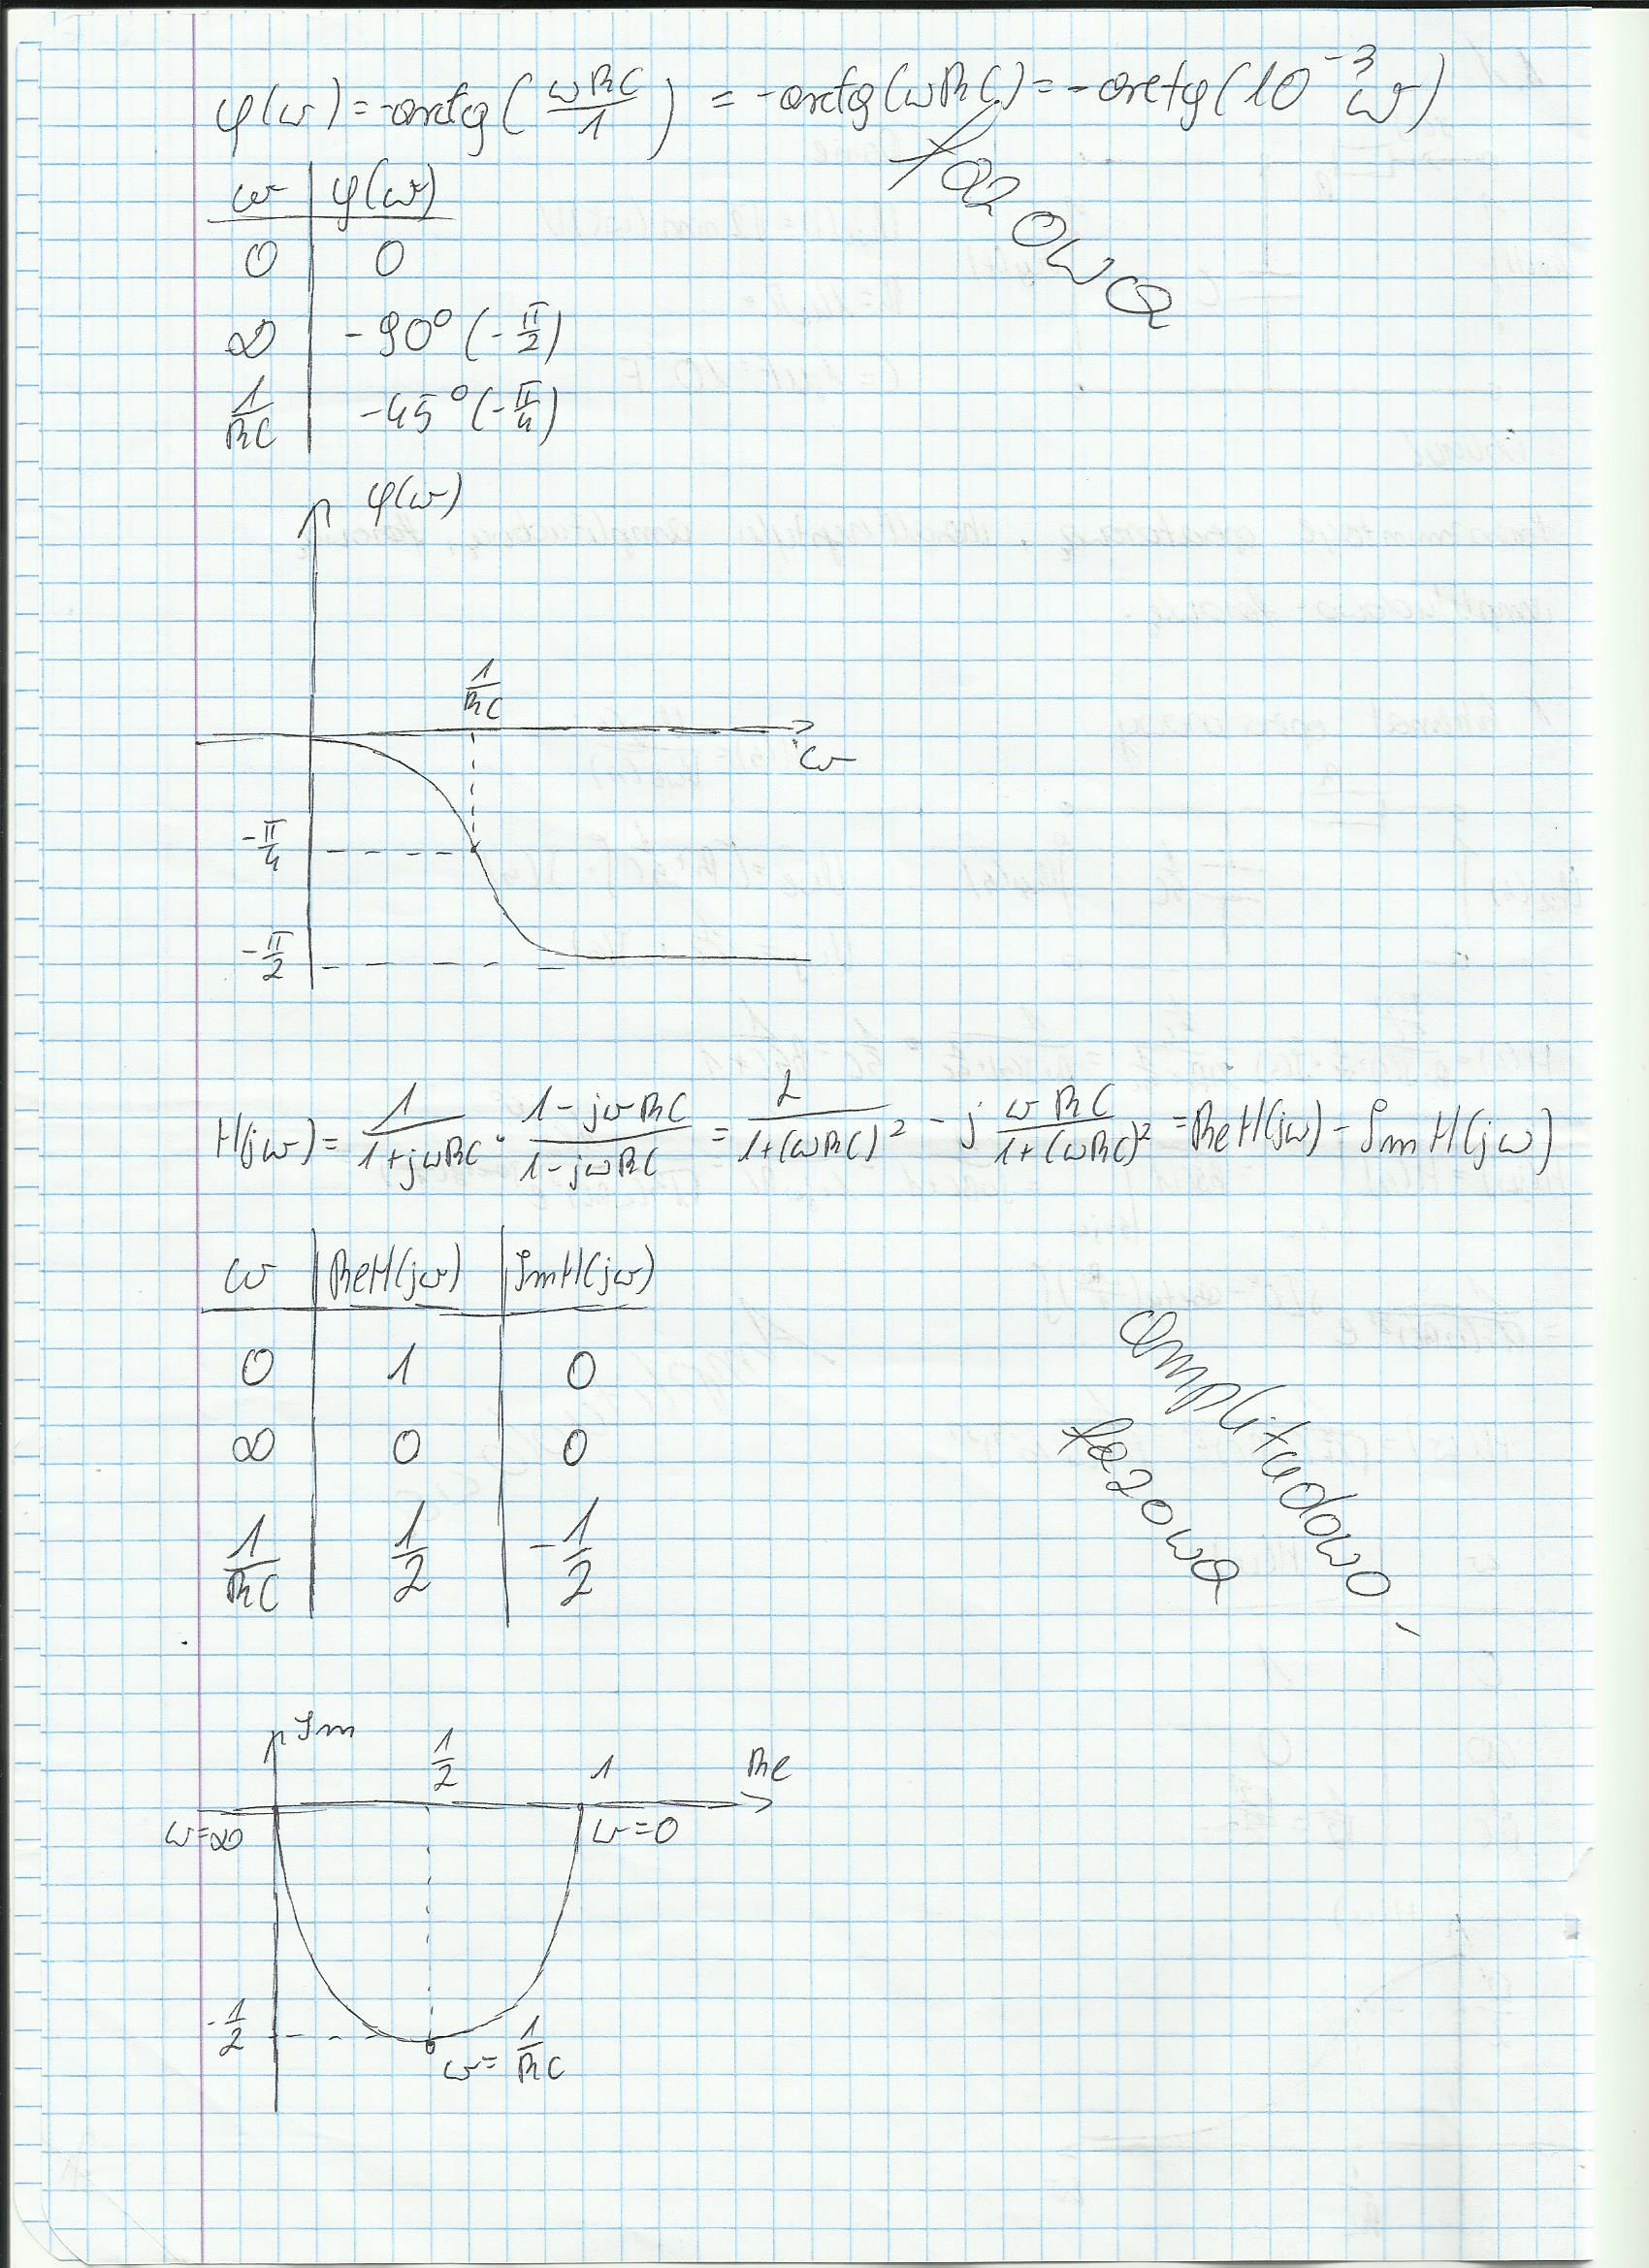 φ(ω) = -arctg(ωRC/1) = -arctg(ωRC) = -arctg(10⁻³ω)
fazowa
ω | φ(ω)
0 | 0
∞ | -90° (-π/2)
1/RC | -45° (-π/4)
φ(ω)
1/RC
ω
-π/4
-π/2
H(jω) = 1/(1+jωRC) · (1-jωRC)/(1-jωRC) = 1/(1+(ωRC)²) - j ωRC/(1+(ωRC)²) = ReH(jω) - ImH(jω)
ω | ReH(jω) | ImH(jω)
0 | 1 | 0
∞ | 0 | 0
1/RC | 1/2 | -1/2
amplitudowo-
fazowa
Im
1/2
1
Re
ω=∞
ω=0
-1/2
ω=1/RC